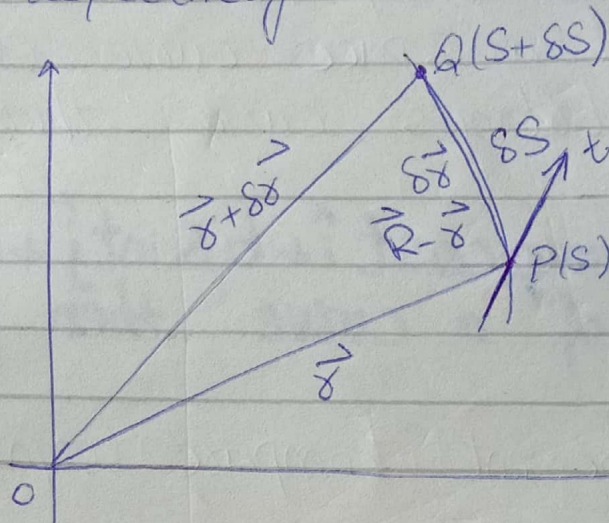 Q(S+δS)
δS
t
δr⃗
r⃗+δr⃗
R⃗-r⃗
P(S)
r⃗
O